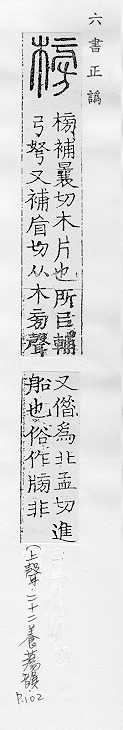 六書正譌
榜
榜補曩切木片也所㠯輔
弓弩又補盲切从木㫄聲
又借為北孟切進
船也俗作牓非
(上聲·二十二養蕩韻)
P.102